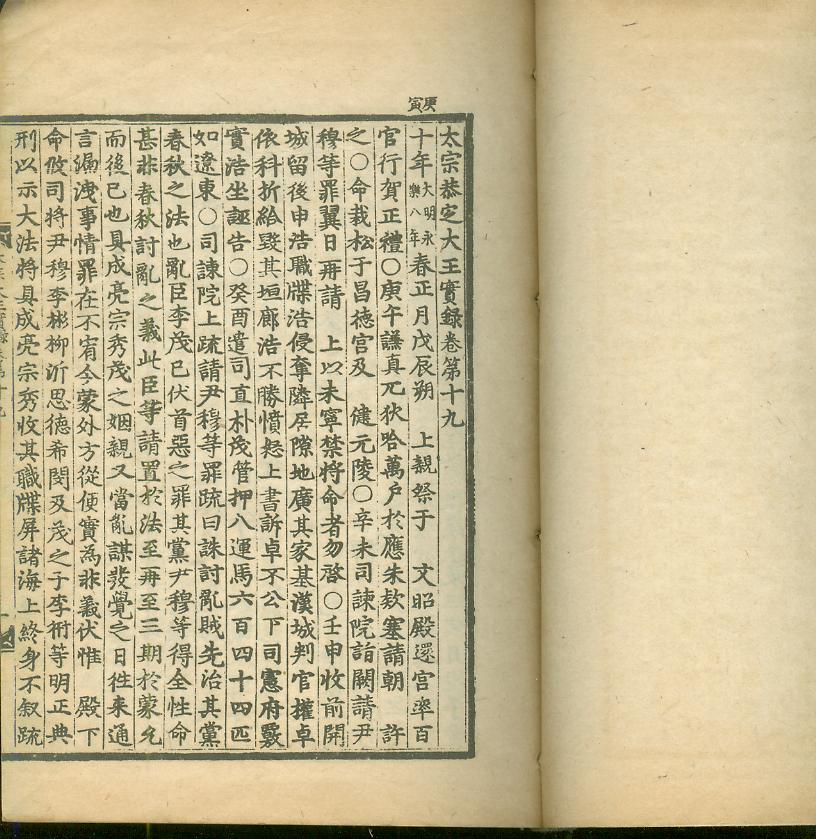 庚寅
太宗恭定大王實錄卷第十九
十年大明永樂八年春正月戊辰朔　上親祭于　文昭殿還宮率百
官行賀正禮○庚午議真兀狄哈萬戶於應朱欵塞請朝　許
之○命栽松于昌德宮及　健元陵○辛未司諫院詣闕請尹
穆等罪翼日再請　上以未寧禁將命者勿啓○壬申收前開
城留後申浩職牒浩侵奪隣居隙地廣其家基漢城判官權卓
依科折給毀其垣廊浩不勝憤怒上書訴卓不公下司憲府覈
實浩坐誣告○癸酉遣司直朴茂管押八運馬六百四十四匹
如遼東○司諫院上疏請尹穆等罪疏曰誅討亂賊先治其黨
春秋之法也亂臣李茂已伏首惡之罪其黨尹穆等得全性命
甚非春秋討亂之義此臣等請置於法至再至三期於蒙允
而後已也具成亮宗秀茂之姻親又當亂謀發覺之日徃來通
言漏洩事情罪在不宥今蒙外方從便實為非義伏惟　殿下
命攸司將尹穆李彬柳沂思德希閔及茂之子李衎等明正典
刑以示大法將具成亮宗秀收其職牒屏諸海上終身不叙疏